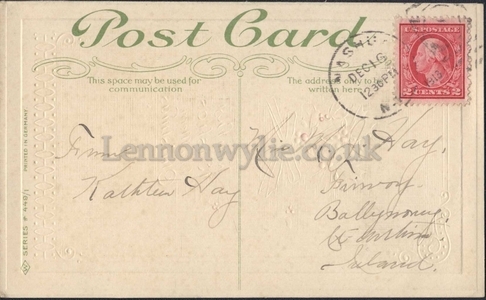 Post Card
This space may be used for
communication
The address only to be
written here
DEC 16
12 30 PM
N.H.
U.S. POSTAGE
2 CENTS 2
Lennonwylie.co.uk
From
Kathleen Hay
Hay,
Ballymoney
Co Antrim
Ireland.
PRINTED IN GERMANY
SERIES # 440/1